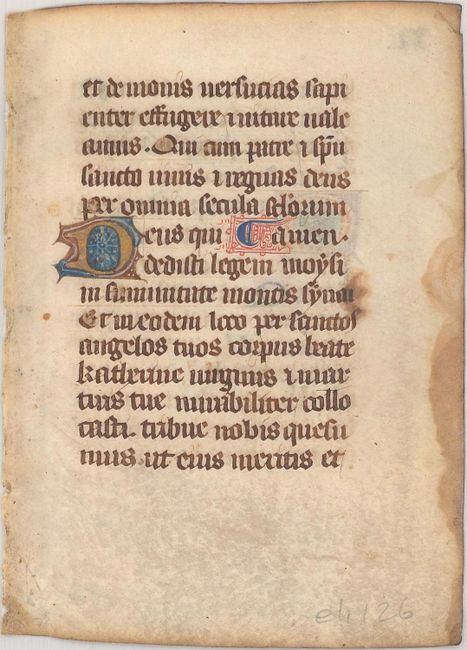 et demonis uersucias sapi
enter effugere ⁊ uitare uale
amus. Qui cum patre ⁊ sp̄u
sancto uiuis ⁊ regnas deus
per omnia secula sc̄lorum
Deus qui Camen.
dedisti legem moysi
in summitate montis synai
Et in eodem loco per sanctos
angelos tuos corpus beate
katherine uirginis ⁊ mar
tiris tue mirabiliter collo
casti. tribue nobis quesu
mus. ut eius meritis et
eh 126